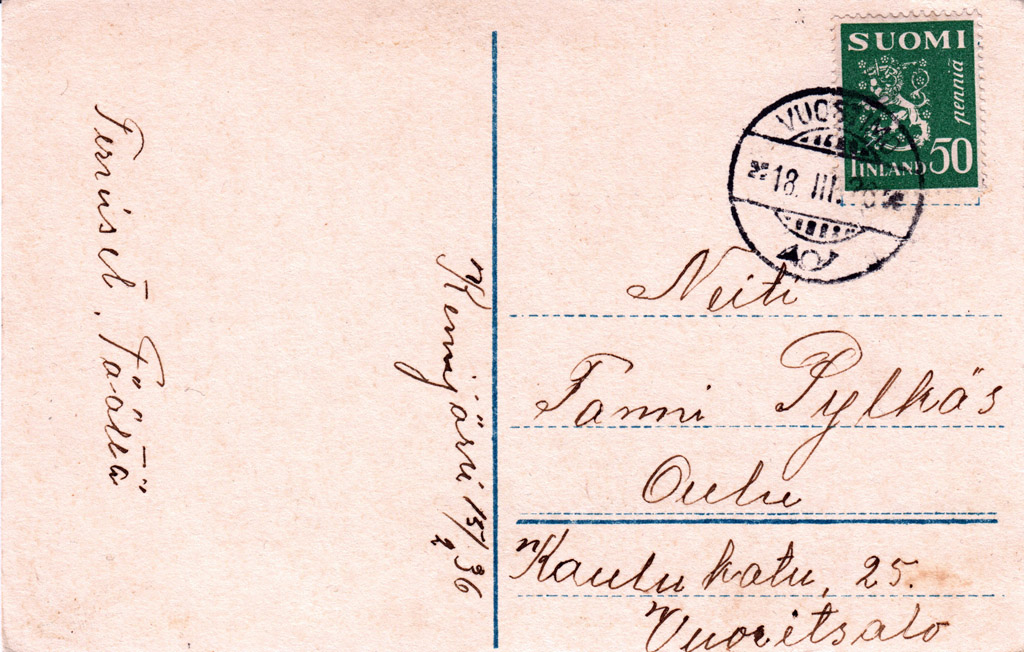 Terveiset, Täältä
Kemijärvi 15/2 36
SUOMI
penniä
50
FINLAND
VUOSTIMO
18. III. 36
Neiti
Fanni Pylkäs
Oulu
Koulukatu, 25.
Vuoritsalo